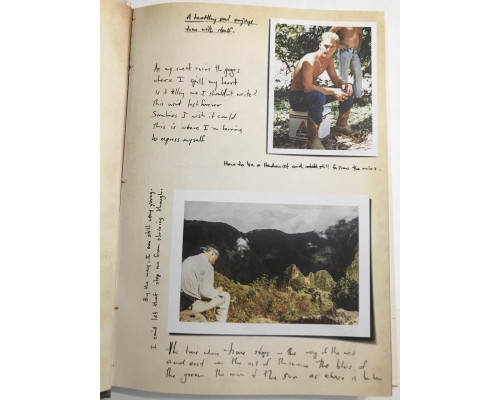 A healthy and
time with
As my sweat ruins the pages
where I spill my heart
is it telling me I shouldn't write?
This wont last forever
Somehow I wish it could
This is where I'm learning
to express myself
How to be a Hedonist and still follow the rules.
By the way, I am still very young.
I cant let that stop me from shining though.
The time when time stops - the way of the wind
and the art of the the blue of
the green the of the sun as above